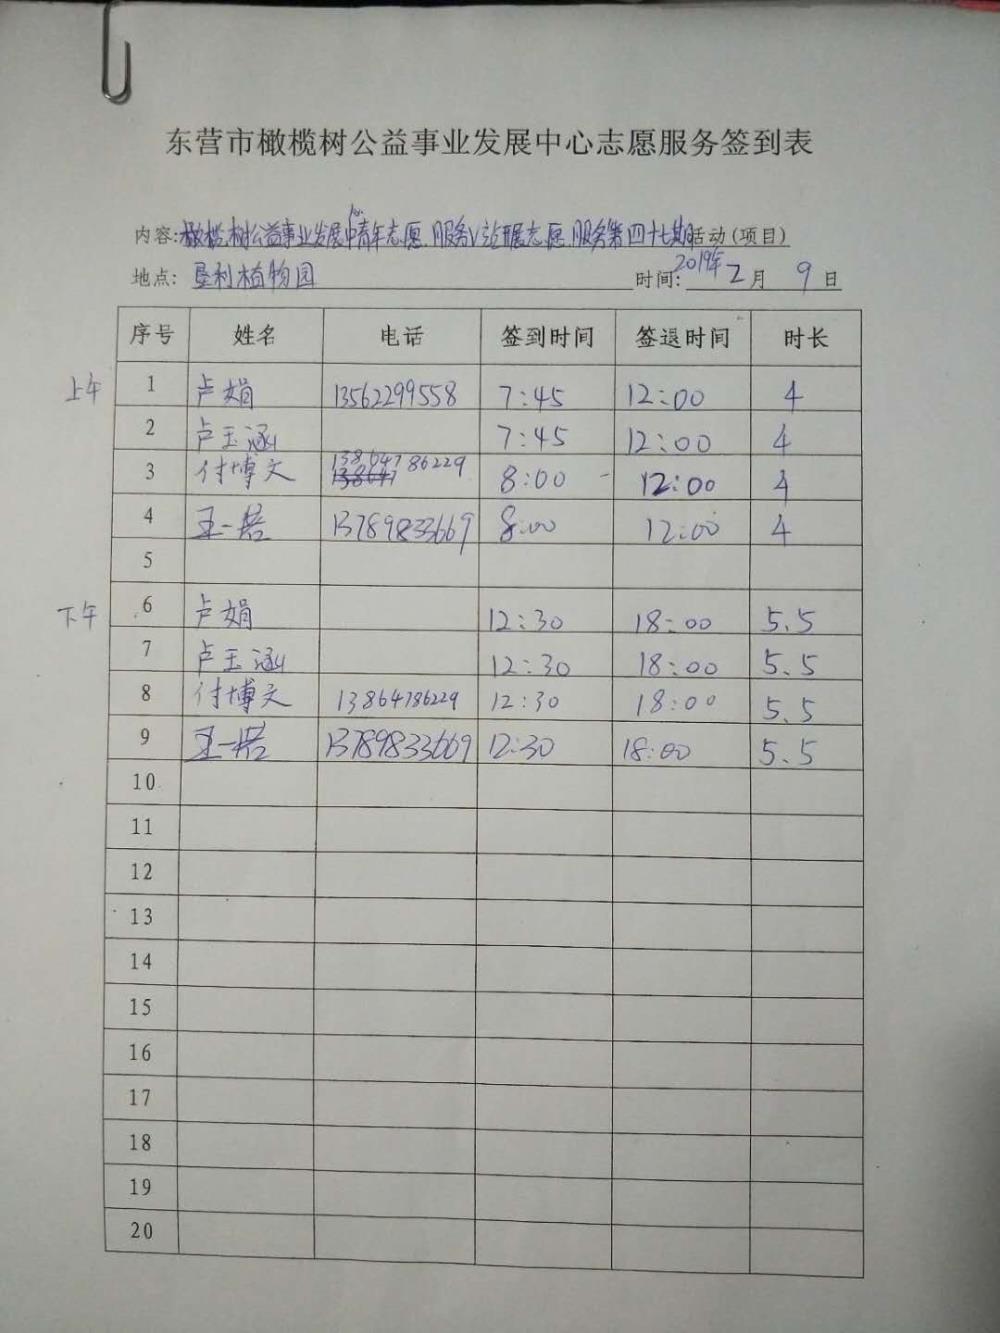 东营市橄榄树公益事业发展中心志愿服务签到表
内容:橄榄树公益事业发展中心青年志愿服务V站开展志愿服务第四十七期活动(项目)
地点: 垦利植物园 时间: 2019年2月9日
序号 姓名 电话 签到时间 签退时间 时长
上午 1 卢娟 13562299558 7:45 12:00 4
2 卢玉涵 7:45 12:00 4
3 付博文 13864786229 8:00 12:00 4
4 王一诺 13789833669 8:00 12:00 4
5
下午 6 卢娟 12:30 18:00 5.5
7 卢玉涵 12:30 18:00 5.5
8 付博文 13864786229 12:30 18:00 5.5
9 王一诺 13789833669 12:30 18:00 5.5
10
11
12
13
14
15
16
17
18
19
20